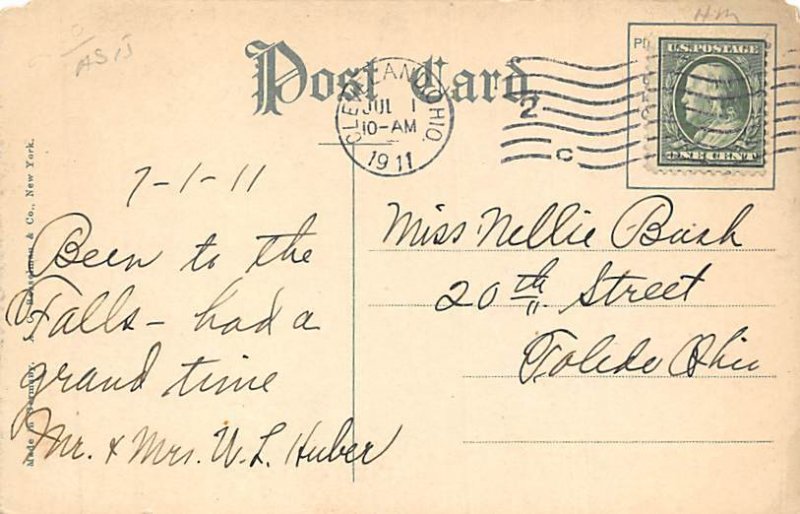 HM
AS IS
Post Card
CLEVELAND, OHIO.
JUL 1
10-AM
1911
2
C
U.S. POSTAGE
ONE CENT
7-1-11
Been to the
Falls - had a
grand time
Mr. & Mrs. W. L. Huber
Miss Nellie Bush
20th Street
Toledo Ohio
Made in Germany. & Co., New York.